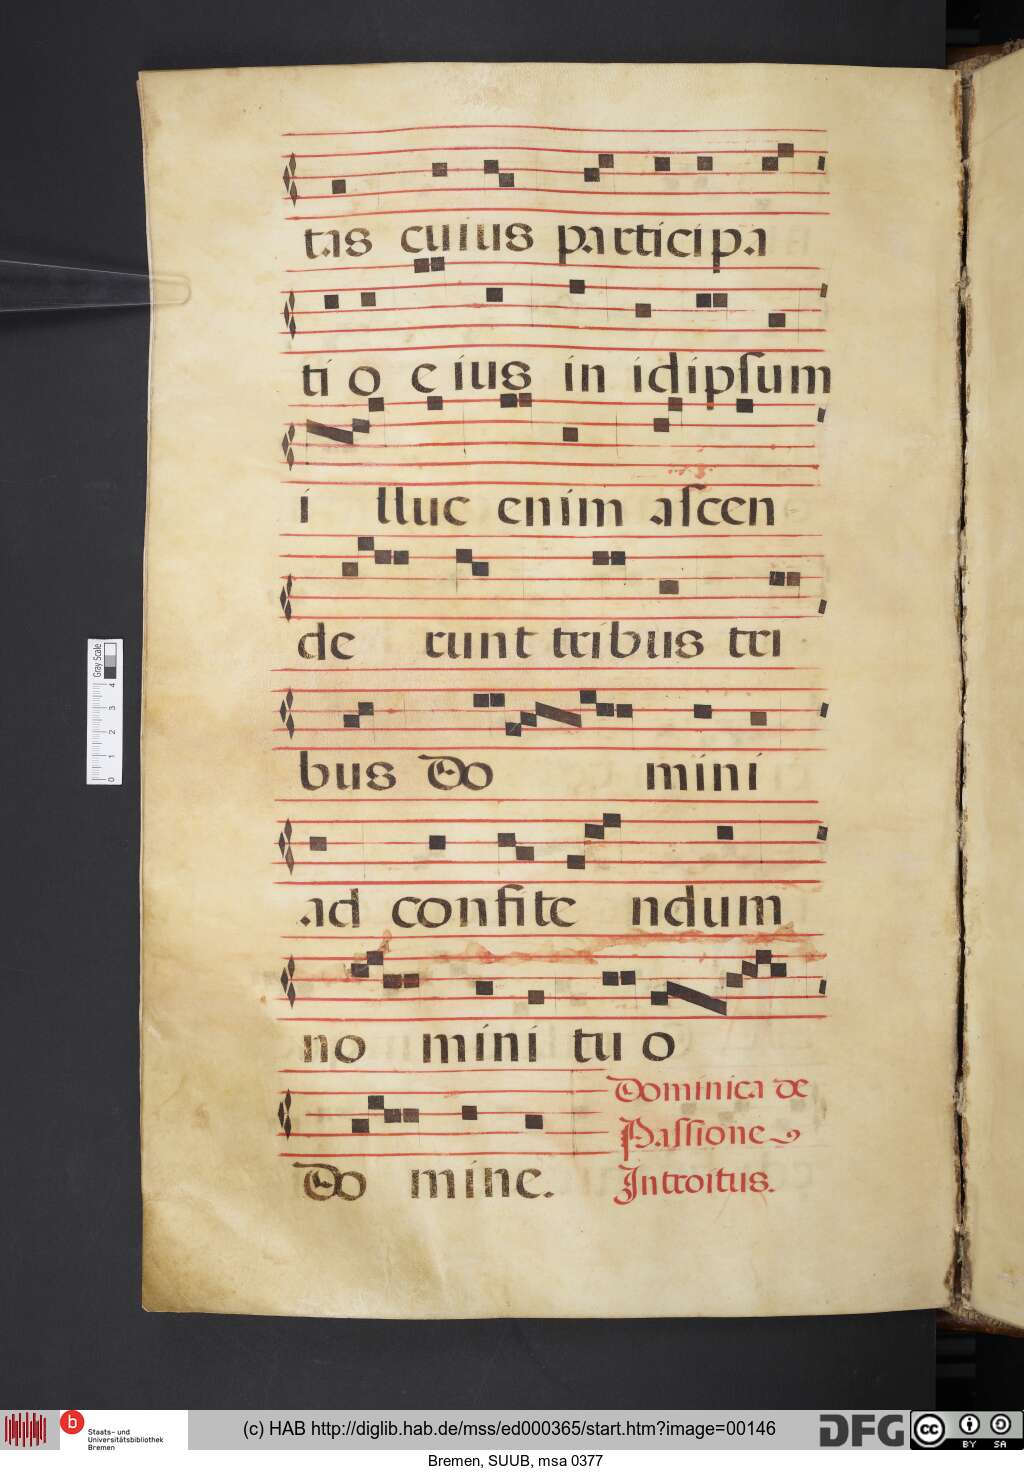 tas cuius participa
tio eius in idipſum
i lluc enim aſcen
de runt tribus tri
bus Do mini
ad confite ndum
no mini tu o
Dominica de
Paſſione
Do mine.
Introitus.
Gray Scale
0 1 2 3 4
b
Staats- und
Universitätsbibliothek
Bremen
(c) HAB http://diglib.hab.de/mss/ed000365/start.htm?image=00146
DFG
cc BY SA
Bremen, SUUB, msa 0377